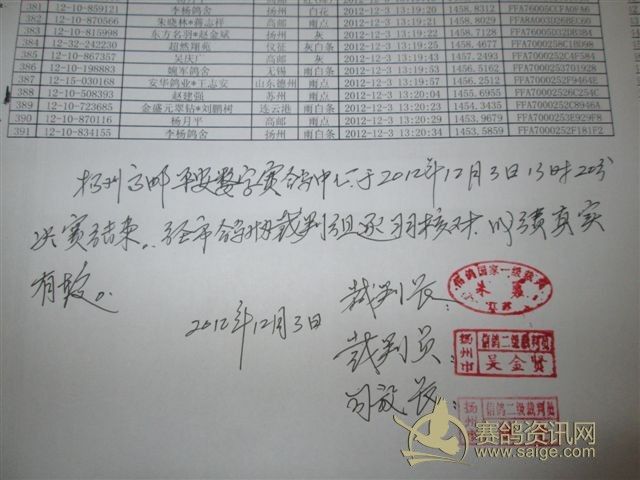 381 12-10-859121 李杨鸽舍 扬州 白花 2012-12-3 1458.8312 FFA76005CCFA0FA6
382 12-10-870566 朱晓林*蒋志祥 高邮 雨点 2012-12-3 1458.8029 FFA8A003D26BEC66
383 12-10-815958 东方名羽*赵金斌 扬州 灰 2012-12-3 1458.7921
384 12-32-242230 超然翔苑 仪征 灰白条 2012-12-3 13:19:25 1458.4677 FFA7000258C1BD98
385 12-10-867357 吴庆广 高邮 灰 2012-12-3 13:19:43 1457.2493 FFA7000252C4F584
386 12-10-198883 婉军鸽舍 无锡 雨白条 2012-12-3 13:19:51 1456.5162 FFA7000253701928
387 12-15-030168 安华鸽业*王志安 山东德州 雨点 2012-12-3 13:19:57 1456.2512 FFA7000252F9464E
388 12-10-508393 赵建强 苏州 雨点 2012-12-3 13:20:01 1455.6955 FFA7000252526C254C
389 12-10-723685 金盛元翠钻*刘鹏树 连云港 雨白条 2012-12-3 13:20:23 1454.3435 FFA7000252C8946A
390 12-10-870116 杨月平 高邮 灰 2012-12-3 13:20:29 1454.0268 FFA7000253E929F8
391 12-10-834155 李杨鸽舍 扬州 雨白条 2012-12-3 13:20:34 1453.5859 FFA7000252F181F2
扬州高邮平安数字赛鸽中心于2012年12月3日13时20分
决赛结束。经市鸽协裁判组逐羽核对，成绩真实
有效。
2012年12月3日
裁判长
信鸽国家一级裁判
江苏
裁判员
扬州市
信鸽二级裁判员
吴金贤
司放长
扬州市
信鸽二级裁判员
赛鸽资讯网
www.saige.com